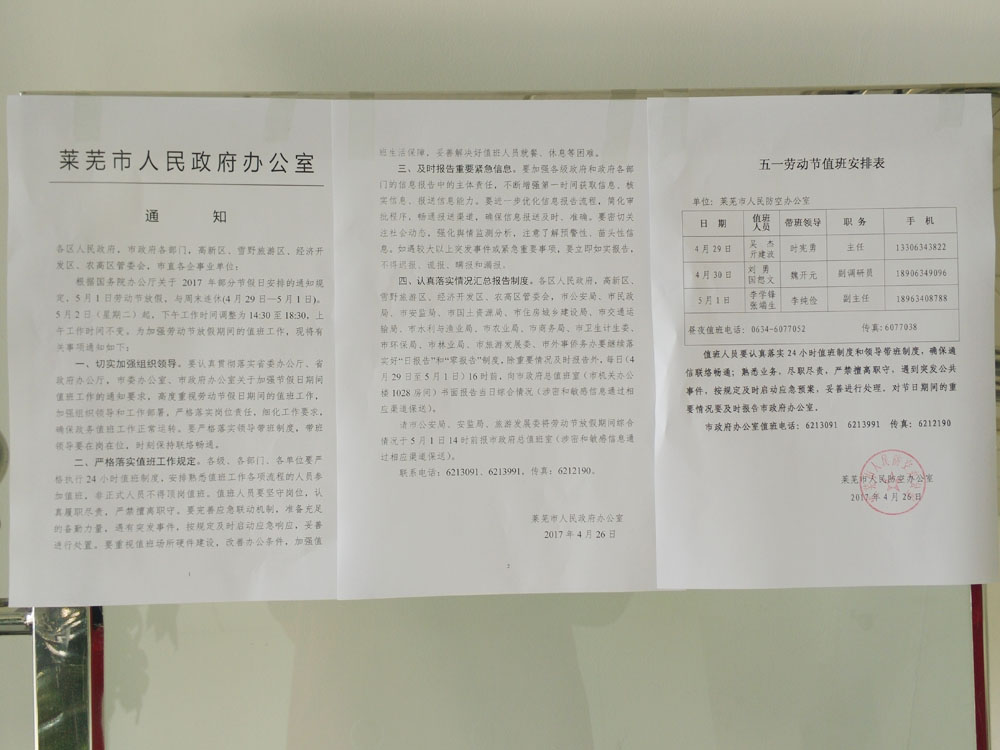 莱芜市人民政府办公室
通 知
各区人民政府，市政府各部门，高新区、雪野旅游区、经济开
发区、农高区管委会，市直各企事业单位：
根据国务院办公厅关于 2017 年部分节假日安排的通知规
定，5 月 1 日劳动节放假，与周末连休(4 月 29 日—5 月 1 日)。
5 月 2 日（星期二）起，下午工作时间调整为 14:30 至 18:30，上
午工作时间不变。为加强劳动节放假期间的值班工作，现将有
关事项通知如下：
一、切实加强组织领导。要认真贯彻落实省委办公厅、省
政府办公厅，市委办公室、市政府办公室关于加强节假日期间
值班工作的通知要求，高度重视劳动节假日期间的值班工作，
加强组织领导和工作部署，严格落实岗位责任，细化工作要求，
确保政务值班工作正常运转。要严格落实领导带班制度，带班
领导要在岗在位，时刻保持联络畅通。
二、严格落实值班工作规定。各级、各部门、各单位要严
格执行 24 小时值班制度，安排熟悉值班工作各项流程的人员参
加值班，非正式人员不得顶岗值班。值班人员要坚守岗位，认
真履职尽责，严禁擅离职守。要完善应急联动机制，准备充足
的备勤力量，遇有突发事件，按规定及时启动应急响应，妥善
进行处置。要重视值班场所硬件建设，改善办公条件，加强值
1
班生活保障，妥善解决好值班人员就餐、休息等困难。
三、及时报告重要紧急信息。要加强各级政府和政府各部
门的信息报告中的主体责任，不断增强第一时间获取信息、核
实信息、报送信息能力。要进一步优化信息报告流程，简化审
批程序，畅通报送渠道，确保信息报送及时、准确。要密切关
注社会动态，强化舆情监测分析，注意了解预警性、苗头性信
息。如遇较大以上突发事件或紧急重要事项，要立即如实报告，
不得迟报、谎报、瞒报和漏报。
四、认真落实情况汇总报告制度。各区人民政府，高新区、
雪野旅游区、经济开发区、农高区管委会，市公安局、市民政
局、市安监局、市国土资源局、市住房城乡建设局、市交通运
输局、市水利与渔业局、市农业局、市商务局、市卫生计生委、
市环保局、市林业局、市旅游发展委、市外事侨务办要继续落
实好“日报告”和“零报告”制度，除重要情况及时报告外，每日(4
月 29 日至 5 月 1 日)16 时前，向市政府总值班室（市机关办公
楼 1028 房间）书面报告当日综合情况（涉密和敏感信息通过相
应渠道保送）。
请市公安局、安监局、旅游发展委将劳动节放假期间综合
情况于 5 月 1 日 14 时前报市政府总值班室(涉密和敏感信息通
过相应渠道保送）。
联系电话：6213091、6213991，传真：6212190。
莱芜市人民政府办公室
2017 年 4 月 26 日
2
五一劳动节值班安排表
单位：莱芜市人民防空办公室
日 期 值班人员 带班领导 职 务 手 机
4 月 29 日 吴 杰 亓建波 时宪勇 主任 13306343822
4 月 30 日 刘 勇 国想文 魏开元 副调研员 18906349096
5 月 1 日 李学锋 张端生 李纯俭 副主任 18963408788
昼夜值班电话：0634-6077052 传真:6077038
值班人员要认真落实 24 小时值班制度和领导带班制度，确保通
信联络畅通；熟悉业务、尽职尽责，严禁擅离职守。遇到突发公共
事件，按规定及时启动应急预案，妥善进行处理。对节日期间的重
要情况要及时报告市政府办公室。
市政府办公室值班电话：6213091 6213991 传真：6212190
莱芜市人民防空办公室
2017 年 4 月 26 日